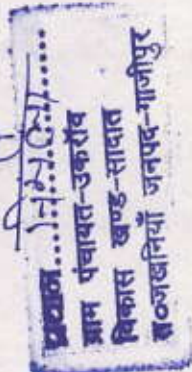 प्रधान..................
ग्राम पंचायत-उकराँव
विकास खण्ड-सादात
त०जखनियाँ जनपद-गाजीपुर